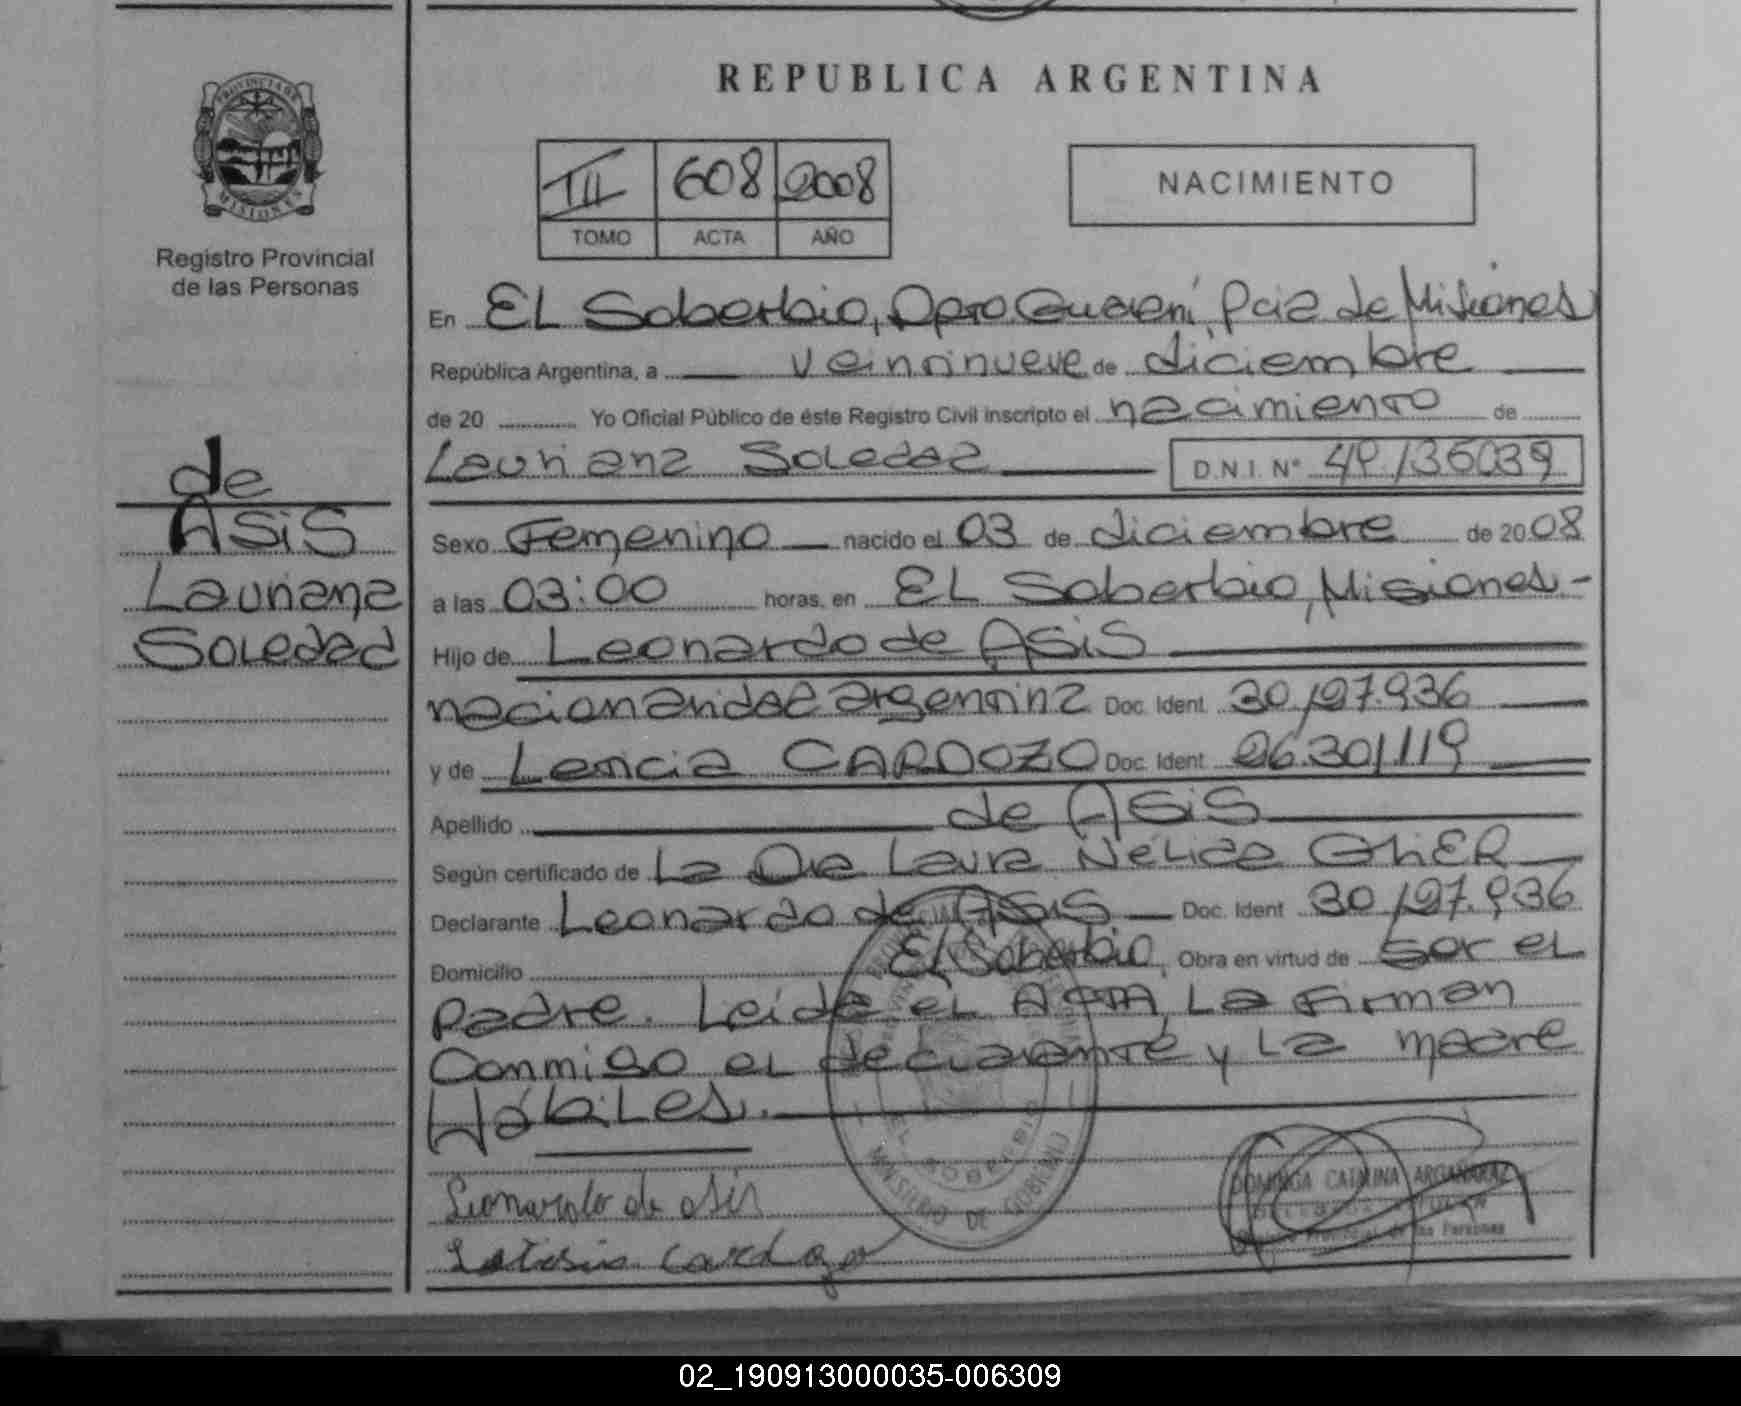 REPUBLICA ARGENTINA
PROVINCIA DE
MISIONES
Registro Provincial
de las Personas
III 608 2008
TOMO ACTA AÑO
NACIMIENTO
de
ASiS
Lauriana
Soledad
En EL Soberbio, Dpto Guaraní, Pcia de Misiones
República Argentina, a veintinueve de diciembre
de 20 Yo Oficial Público de éste Registro Civil inscripto el nacimiento de
Lauriana Soledad D.N.I. Nº
Sexo Femenino nacido el 03 de diciembre de 2008
a las 03:00 horas, en EL Soberbio, Misiones.-
Hijo de Leonardo de ASiS
nacionalidad argentina Doc. Ident. 30.197.936
y de Leticia CARDOZO Doc. Ident. 26.301.119
Apellido de ASiS
Según certificado de La Dra Laura Nélida
Declarante Leonardo de ASiS Doc. Ident 30.197.936
Domicilio El Soberbio, Obra en virtud de ser el
padre. Leída el ACTA, La Firman
Conmigo el declarante y La madre
Hábiles.
Leonardo de Asis
Leticia Cardozo
EL SOBERBIO
MINISTERIO DE GOBIERNO
DOMINGA CATALINA ARGAÑARAZ
de las Personas
02_190913000035-006309